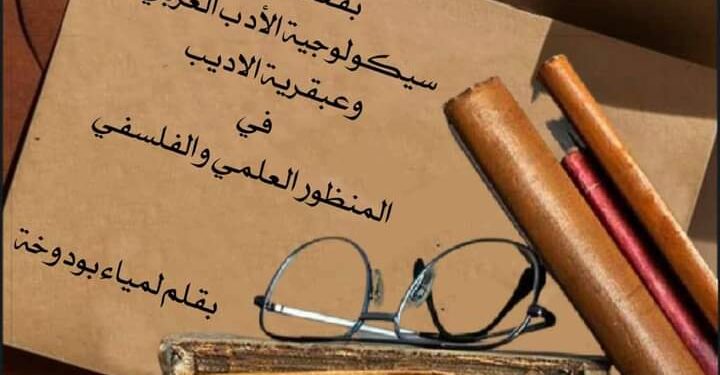 سيكولوجية الأدب العربي
وعبقرية الاديب
في
المنظور العلمي والفلسفي
بقلم لمياء بودوخة